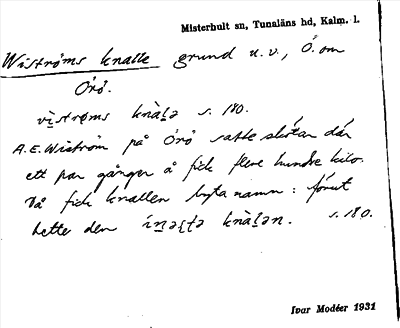 Misterhult sn, Tunaläns hd, Kalm. l.
Wiströms knalle grund u.v., Ö. om
Örö.
vìstrøms knàḷə s. 180.
A.E. Wiström på Örö satte skötar där
ett par gånger å fick flere hundre kilo.
Då fick knallen byta namn: förut
hette den knàḷən. s. 180.
Ivar Modéer 1931